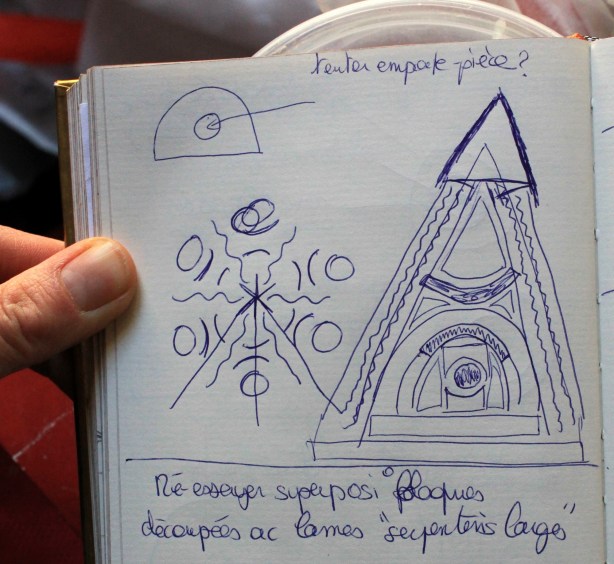 tenter emporte-pièce?
Ré-essayer superposi° plaques
découpées ac lames "serpentins larges"